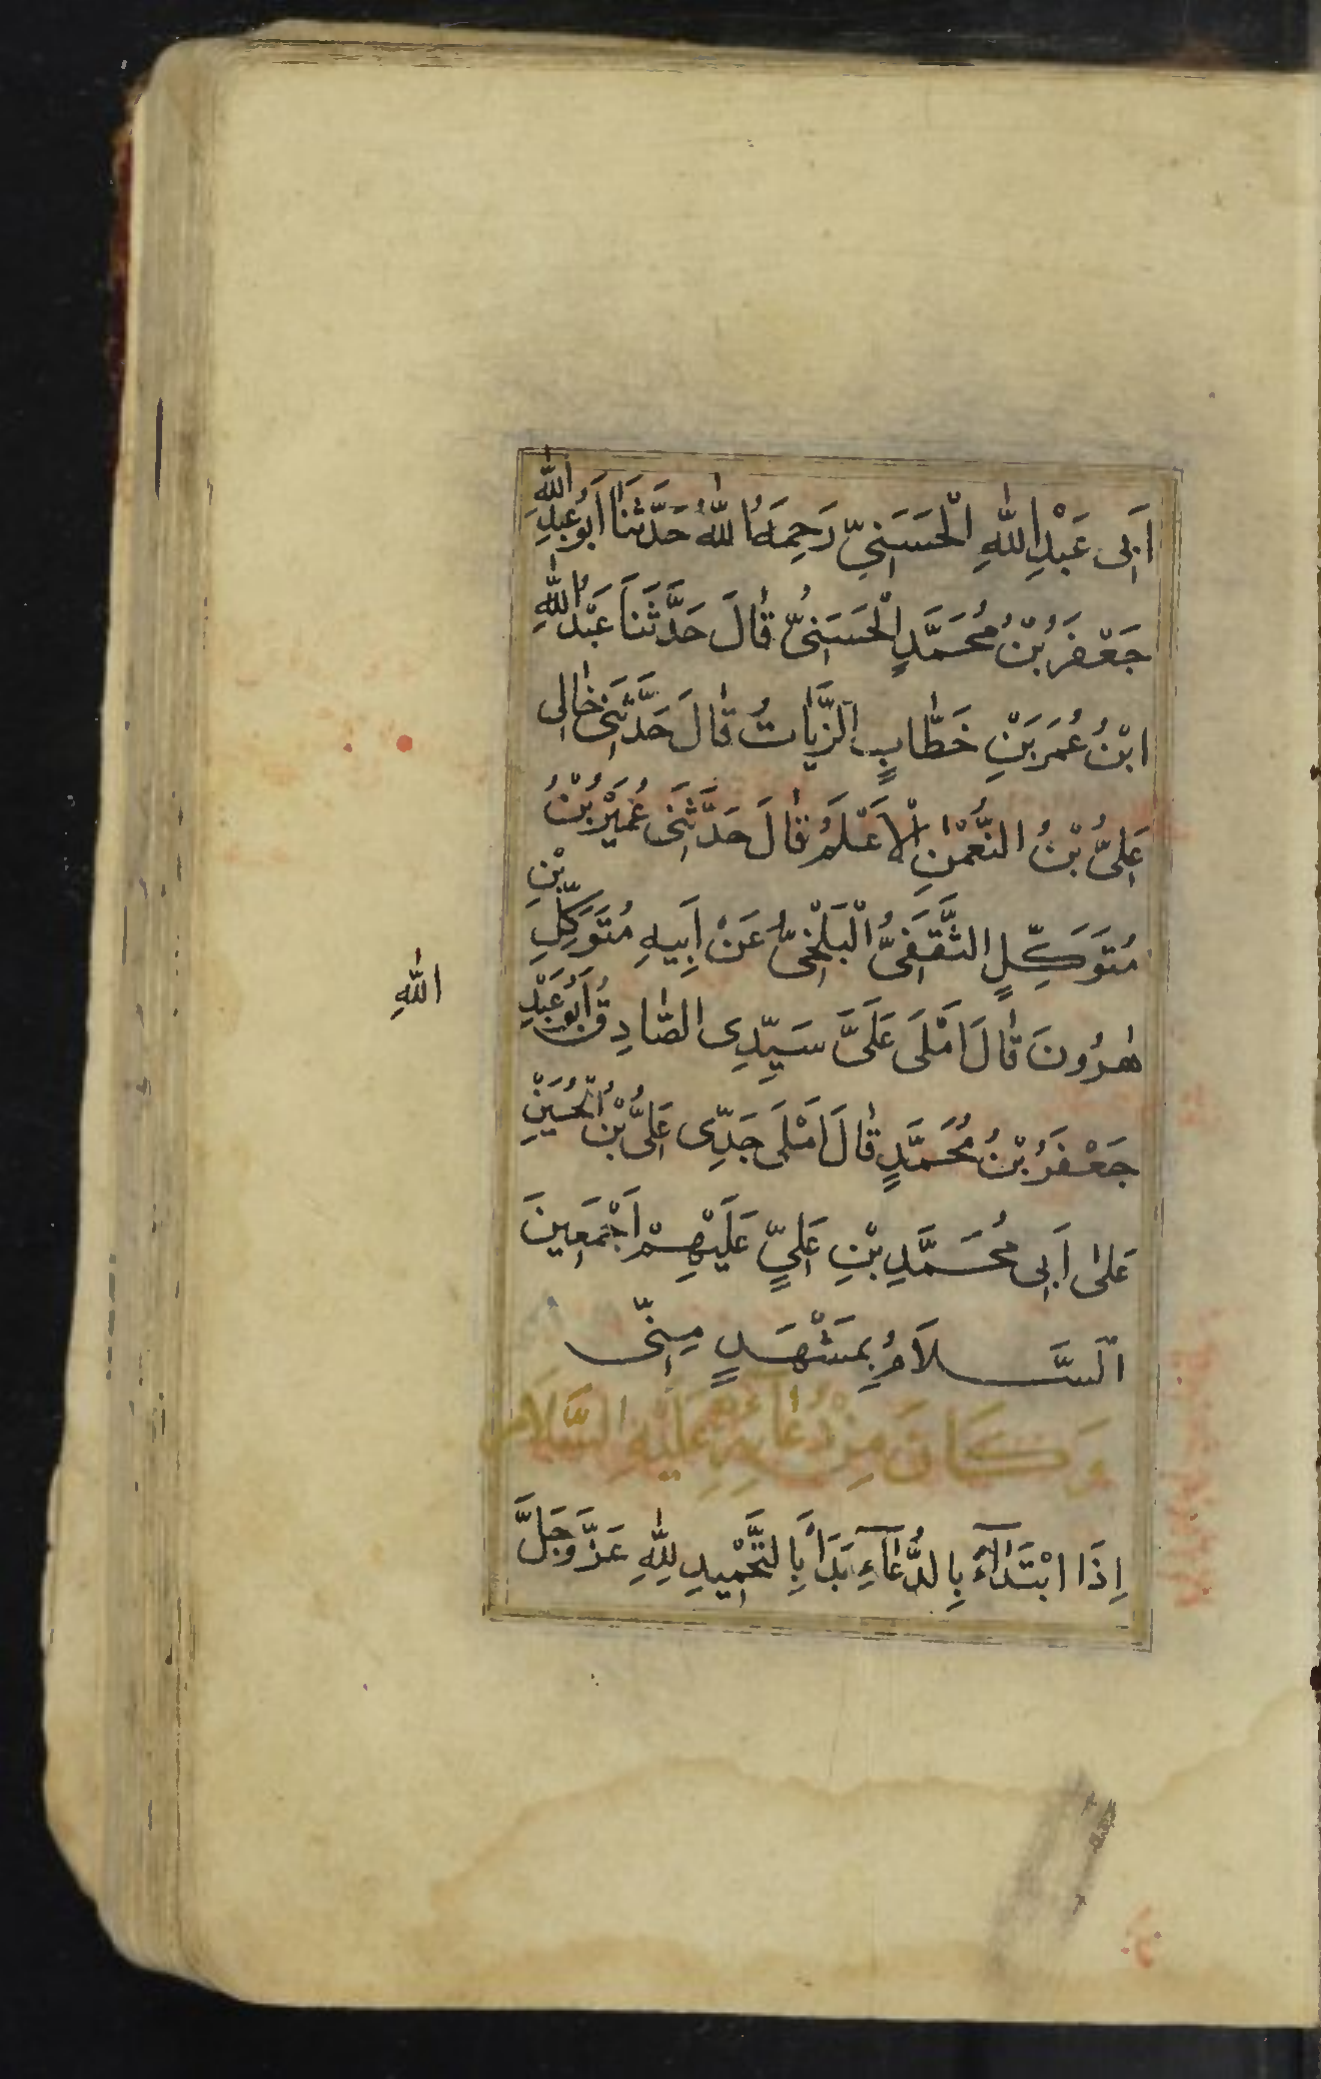 اَبِى عَبْدِ اللّٰهِ الْحَسَنِيِّ رَحِمَهُ اللّٰهُ حَدَّثَنَا اَبُو عَبْدِ اللّٰهِ
جَعْفَرُ بْنُ مُحَمَّدٍ الْحَسَنِىُّ قٰالَ حَدَّثَنَا عَبْدُ اللّٰهِ
ابْنُ عُمَرَ بْنِ خَطّٰابٍ الزَّيّٰاتُ قٰالَ حَدَّثَنِى خٰالِى
عَلِىُّ بْنُ النُّعْمٰنِ الْاَعْلَمُ قٰالَ حَدَّثَنِى عُمَيْرُ بْنُ
مُتَوَكِّلٍ الثَّقَفِىُّ الْبَلْخِىُّ عَنْ اَبِيهِ مُتَوَكِّلِ بْنِ
هٰرُونَ قٰالَ اَمْلَى عَلَىَّ سَيِّدِى الصّٰادِقُ اَبُو عَبْدِ
اللّٰهِ
جَعْفَرُ بْنُ مُحَمَّدٍ قٰالَ اَمْلَى جَدِّى عَلِىُّ بْنُ الْحُسَيْنِ
عَلىٰ اَبِى مُحَمَّدِ بْنِ عَلِيٍّ عَلَيْهِمْ اَجْمَعِينَ
اَلسَّلَامُ بِمَشْهَدٍ مِنِّى
وَكَانَ مِنْ دُعٰائِهِ عَلَيْهِ السَّلَامُ
اِذَا ابْتَدَاَءَ بِالدُّعٰاءِ بَدَاَ بِالتَّحْمِيدِ لِلّٰهِ عَزَّ وَجَلَّ